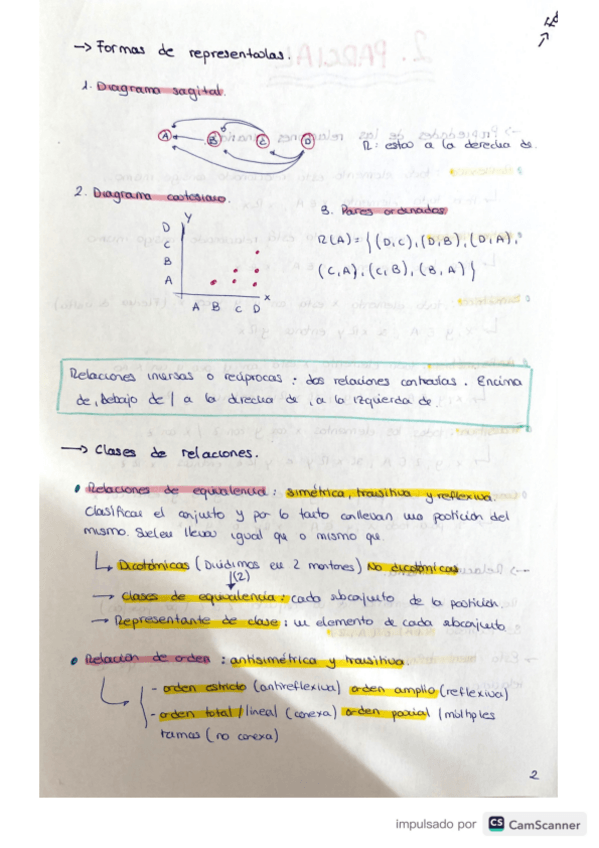 → Formas de representarlas.
1. Diagrama sagital.
A B C D
R: estar a la derecha de.
2. Diagrama cartesiano.
Y
D
C
B
A
A B C D
x
3. Pares ordenados
R(A) = { (D,C), (D,B), (D,A),
(C,A), (C,B), (B,A) }
Relaciones inversas o recíprocas : dos relaciones contrarias. Encima
de, debajo de / a la derecha de, a la izquierda de.
→ Clases de relaciones.
• Relaciones de equivalencia : simétrica, transitiva y reflexiva.
Clasifican el conjunto y por lo tanto conllevan una partición del
mismo. Suelen llevar igual que o mismo que.
↳ Dicotómicas (Dividimos en 2 montones) No dicotómicas
(2)
→ Clases de equivalencia : cada subconjunto de la partición.
→ Representante de clase : un elemento de cada subconjunto
• Relación de orden : antisimétrica y transitiva.
- orden estricto (antireflexiva) orden amplio (reflexiva)
- orden total / lineal (conexa) orden parcial / múltiples
ramas (no conexa)
2
impulsado por CS CamScanner